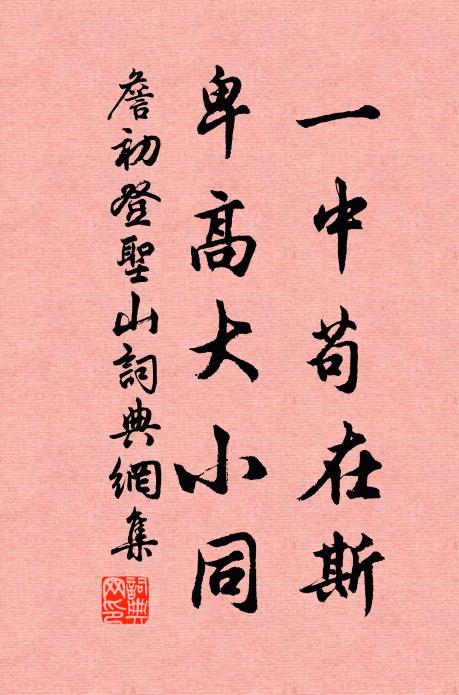 一中苟在斯
卑高大小同
詹初登聖山詞典網集
詞典网印